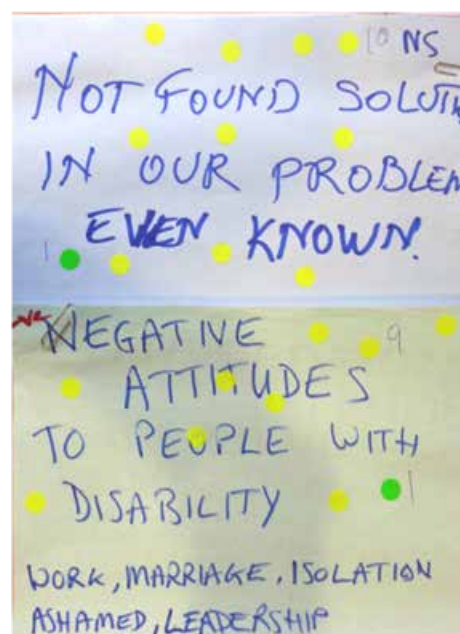 10 NS
NOT FOUND SOLUTI
IN OUR PROBLEM
EVEN KNOWN.
1
NEGATIVE 9
ATTITUDES
TO PEOPLE WITH
DISABILITY 1
WORK, MARRIAGE, ISOLATION
ASHAMED, LEADERSHIP